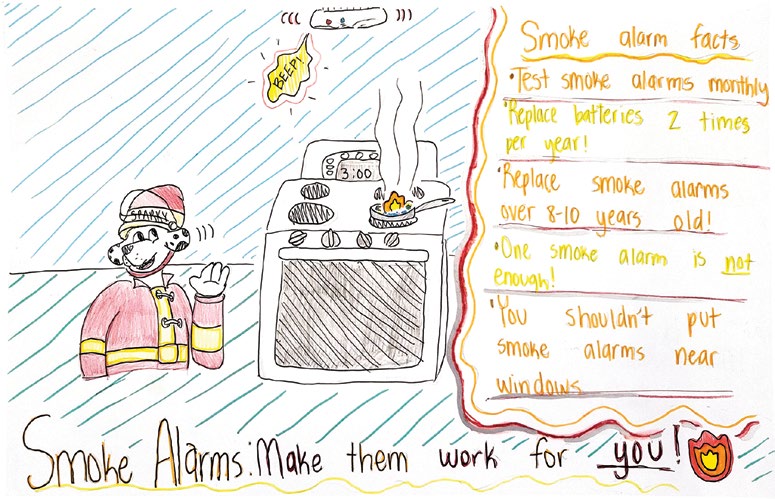 BEEP!
3:00
SPARKY
Smoke alarm facts
•Test smoke alarms monthly
•Replace batteries 2 times
per year!
•Replace smoke alarms
over 8-10 years old!
•One smoke alarm is not
enough!
•You shouldn't put
smoke alarms near
windows
Smoke Alarms: Make them work for you!